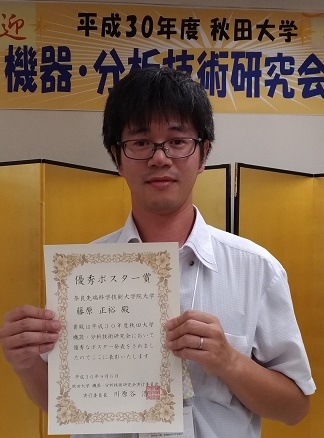 迎
平成30年度 秋田大学
機器・分析技術研究会
優秀ポスター賞
奈良先端科学技術大学院大学
藤原 正裕 殿
貴殿は平成30年度秋田大学
機器・分析技術研究会において
優秀なポスター発表をされまし
たのでここに表彰いたします
平成30年9月6日
秋田大学 機器・分析技術研究会実行委員会
実行委員長 川原谷